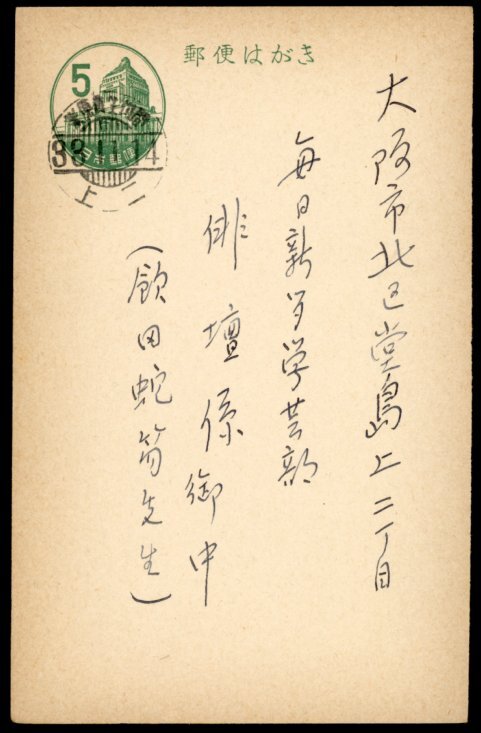 郵便はがき
5
日本郵便
大阪市北区堂島上二丁目
毎日新聞学芸部
俳壇係御中
(飯田蛇笏先生)